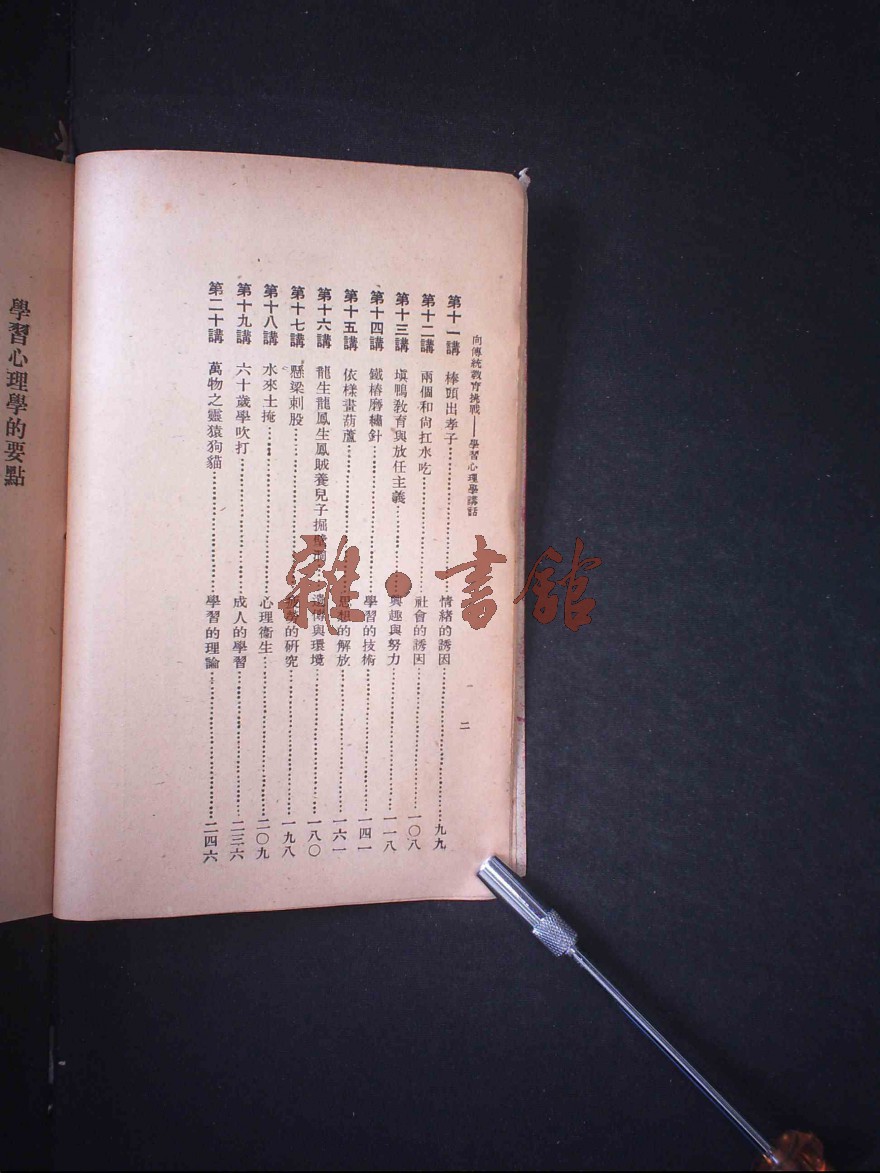 向傳統敎育挑戰——學習心理學講話
二
第十一講 棒頭出孝子……情緒的誘因……九九
第十二講 兩個和尙扛水吃……社會的誘因……一〇八
第十三講 塡鴨敎育與放任主義……興趣與努力……一一八
第十四講 鐵樁磨繡針……學習的技術……一四一
第十五講 依樣畫葫蘆……思想的解放……一六一
第十六講 龍生龍鳳生鳳賊養兒子掘壁洞……遺傳與環境……一八〇
第十七講 懸梁刺股……的研究……一九八
第十八講 水來土掩……心理衞生……二〇九
第十九講 六十歲學吹打……成人的學習……二三六
第二十講 萬物之靈猿狗貓……學習的理論……二四六
學習心理學的要點
雜·書館